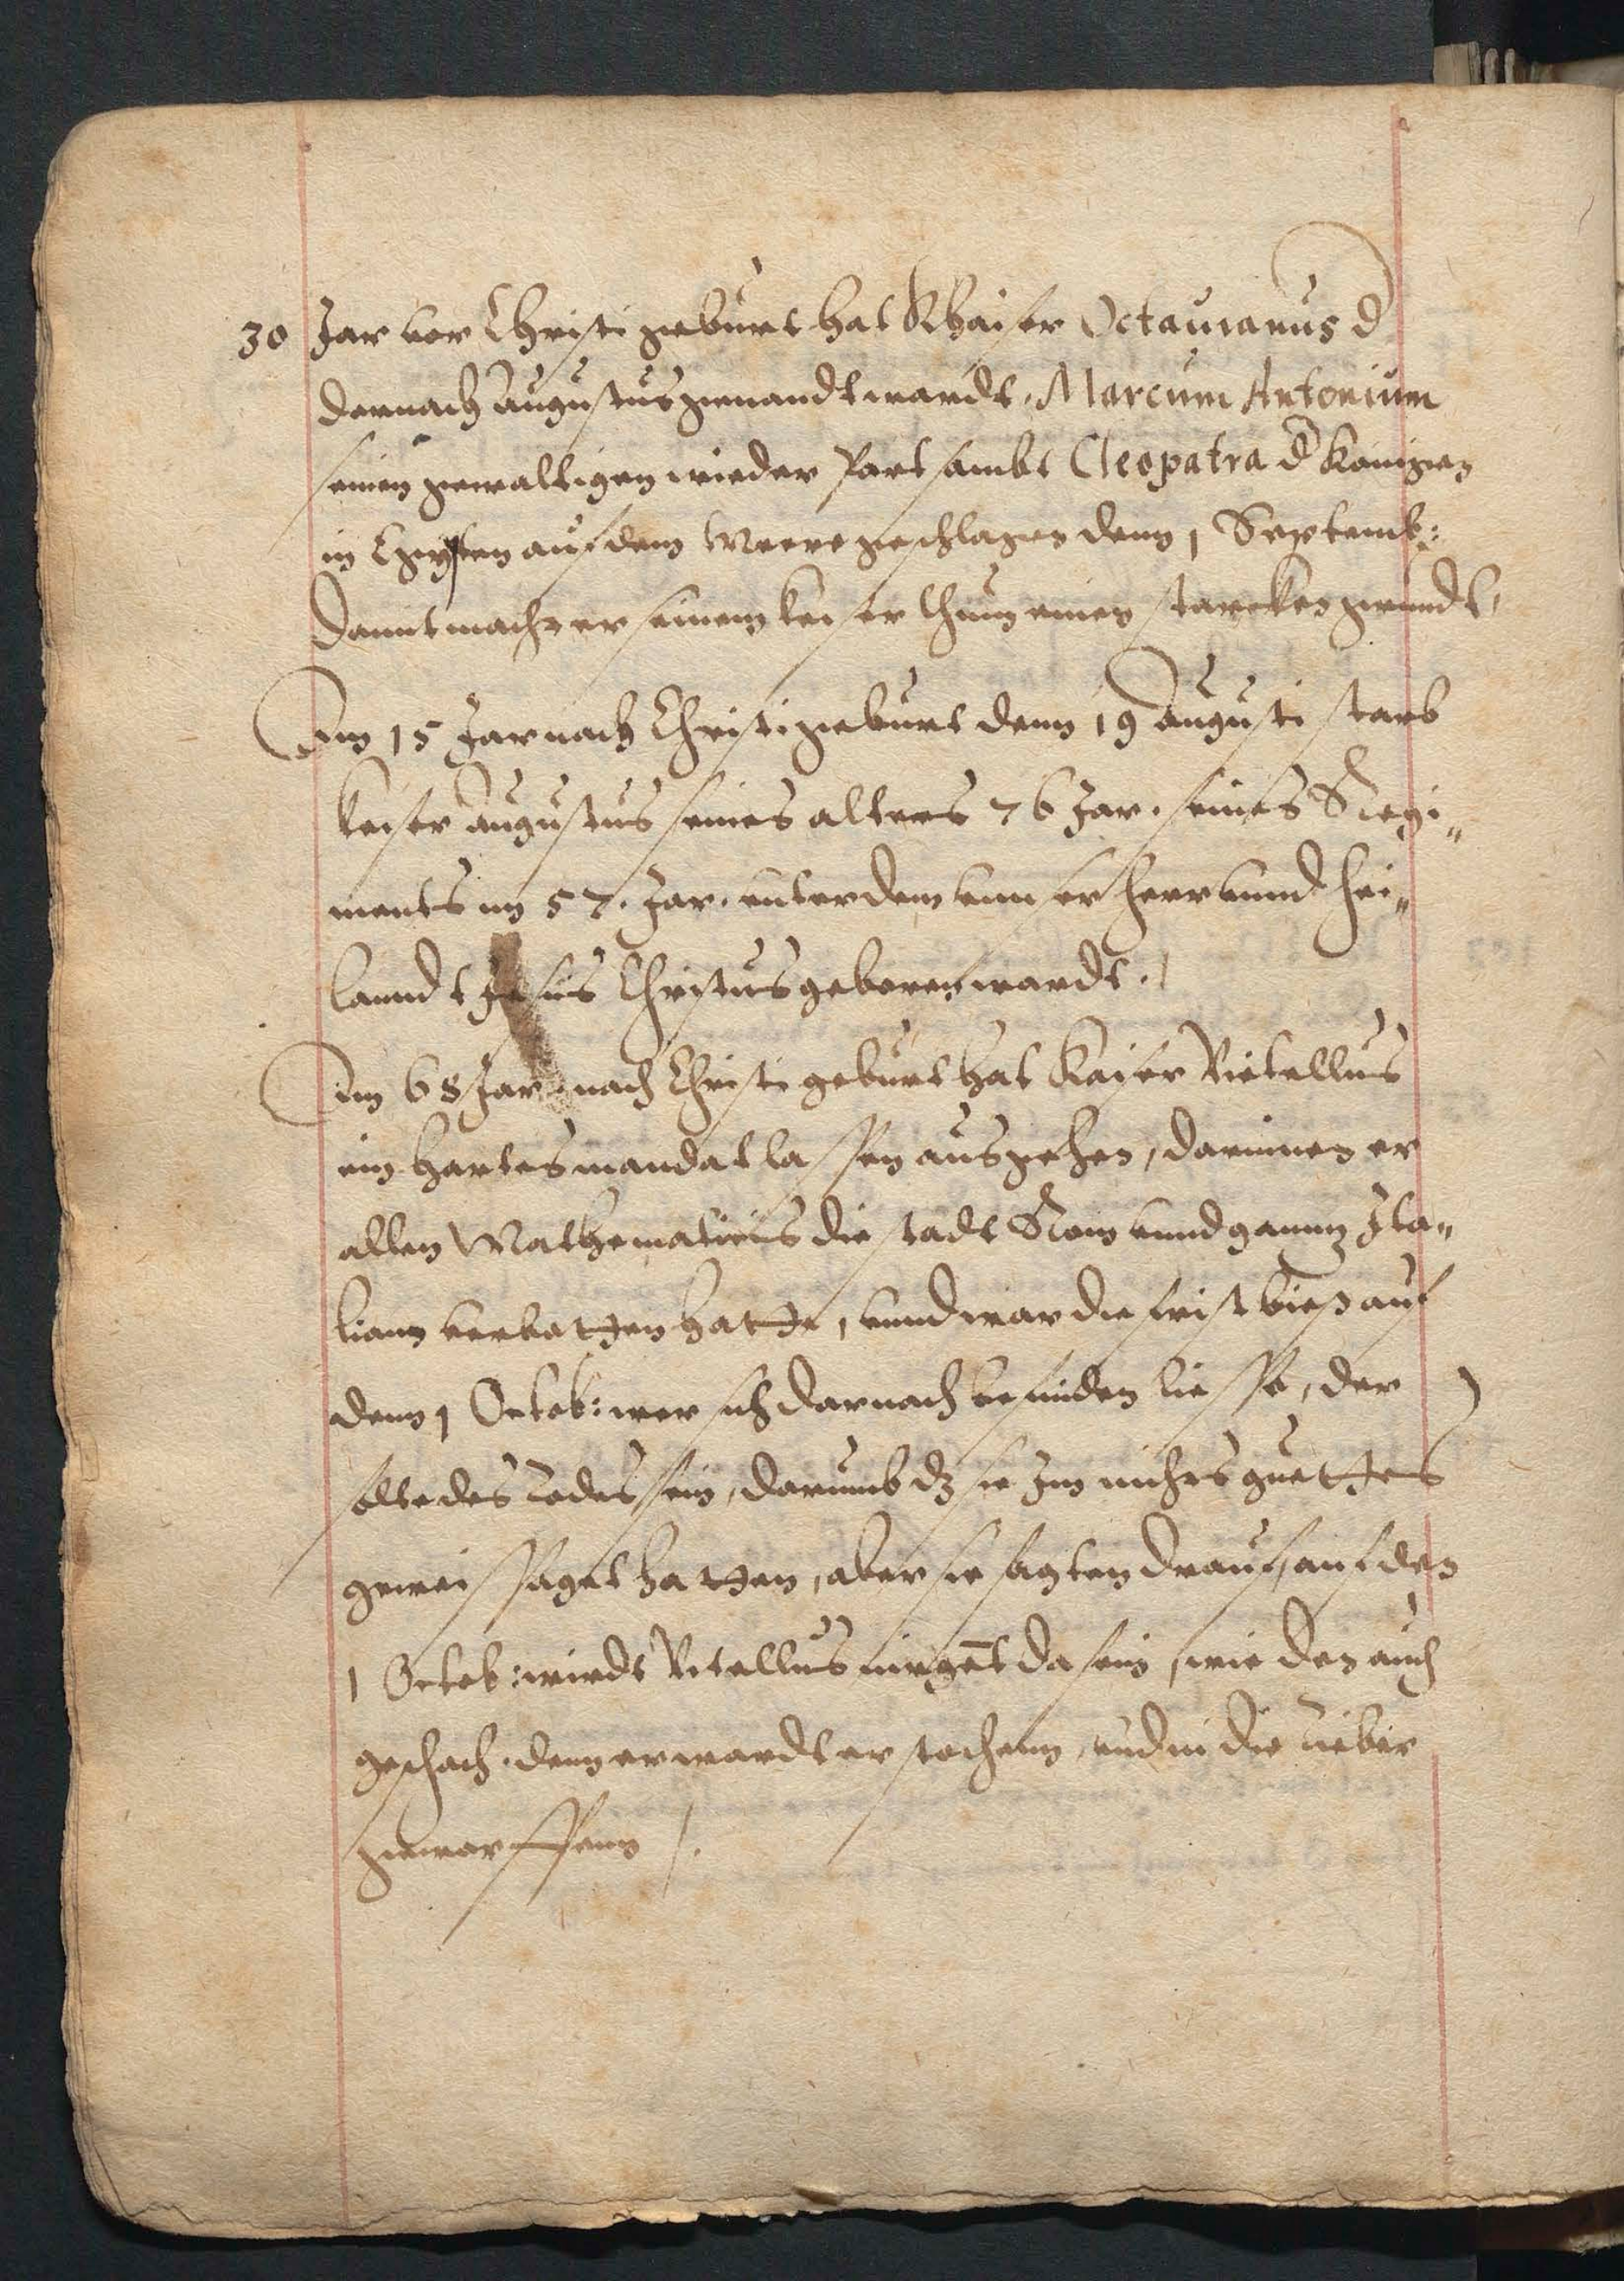 30 Jar vor Christi geburt hat Khaiser Octauianus d
dernach Augustus genandt wardt. Marcum Antonium
seinen gewaltigen wieder Part sambt Cleopatra d Königen
in Egypten auf dem Meere geschlagen denn 1 Septemb:
Damit macht er seinem keiserthum einen starcken grundt,
Im 15 Jar nach Christi geburt denn 19 Augusti starb
keiser Augustus seines alters 76 Jar. seines Regi„
ments im 57. Jar. unter dem unser herr unnd hei„
lanndt Jesus Christus geboren wardt.
Im 68 Jar nach Christi geburt hat Kaiser Vitellius
ein hartes mandat lassen ausgehen, darinnen er
allen Mathematicis die stadt Rom unnd gantz Ita„
liam verbotten hatte, unnd war die frist bies auf
denn 1 Octob: wer sich darnach befinden liesse, der
solte des Todes sein, darumb dz sie Im nichts guttes
geweissaget hatten, aber sie sagten drauf, auf den
1 Octob: wirdt Vitellius nirget da sein, wie den auch
geschach. denn er wardt erstochenn, und in die Tiber
geworffenn